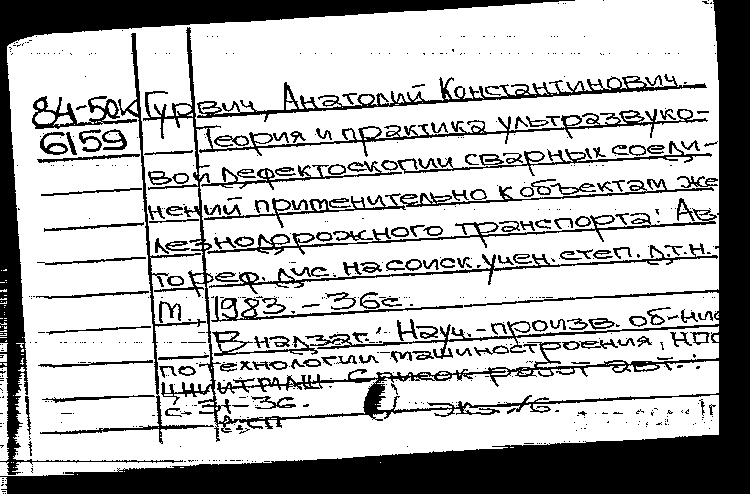 84-50к Гурвич, Анатолий Константинович.
6159 Теория и практика ультразвуко-
вой дефектоскопии сварных соеди-
нений применительно к объектам же
лезнодорожного транспорта: Ав-
тореф. дис. на соиск. учен. степ. д.т.н.-
М., 1983. - 36с.
В надзаг.: Науч.-произв. об-ние
по технологии машиностроения, НПО
ЦНИИТМАШ. Список работ авт.:
с. 31-36.
экз. 16.